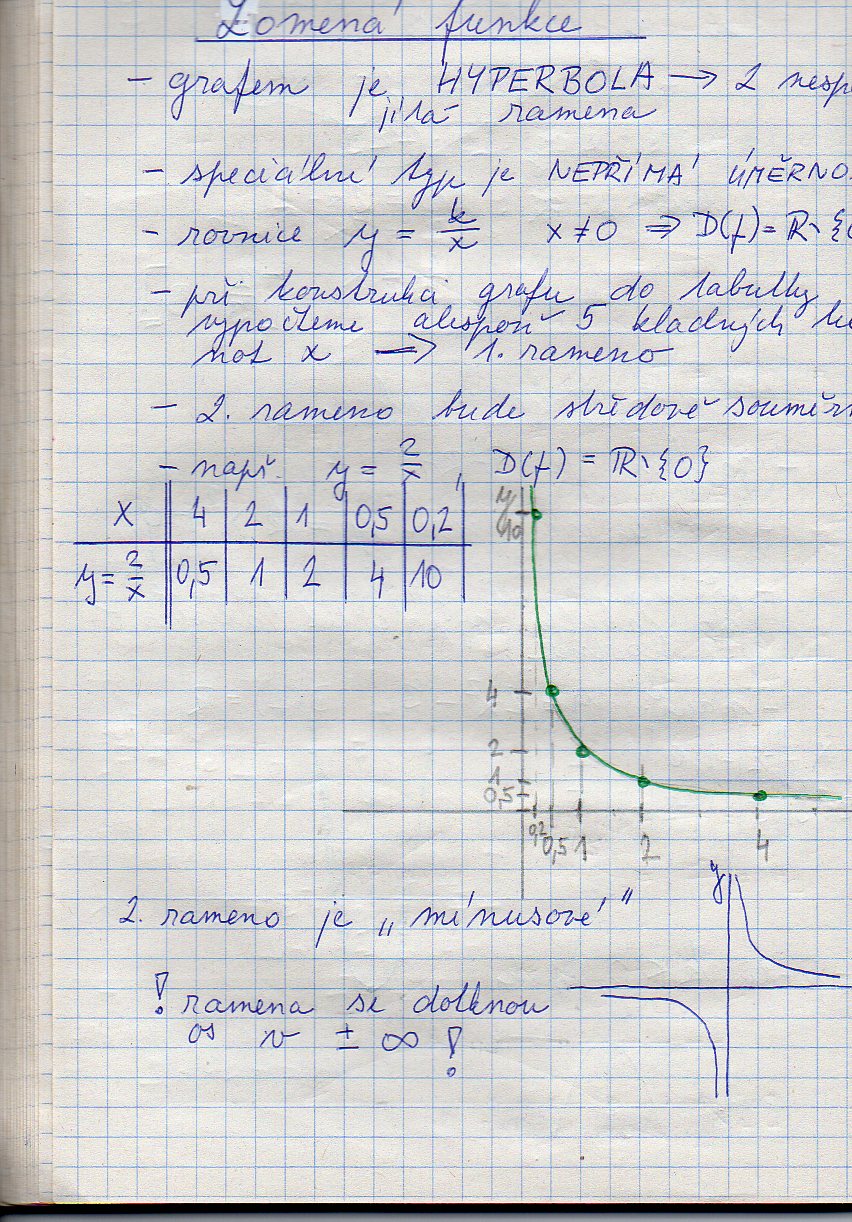 Lomená funkce
- grafem je HYPERBOLA → 2 nespo
jitá ramena
- speciální typ je NEPŘÍMÁ ÚMĚRNOS
- rovnice y = k/x x ≠ 0 ⇒ D(f) = R∖{0
- při konstrukci grafu do tabulky
vypočteme alespoň 5 kladných ho
not x → 1. rameno
- 2. rameno bude středově souměrn
- např. y = 2/x , D(f) = R∖{0}
x 4 2 1 0,5 0,2
y = 2/x 0,5 1 2 4 10
y
10
4
2
1
0,5
0,2 0,5 1 2 4
2. rameno je „mínusové"
y
! ramena se dotknou
os v ± ∞ !